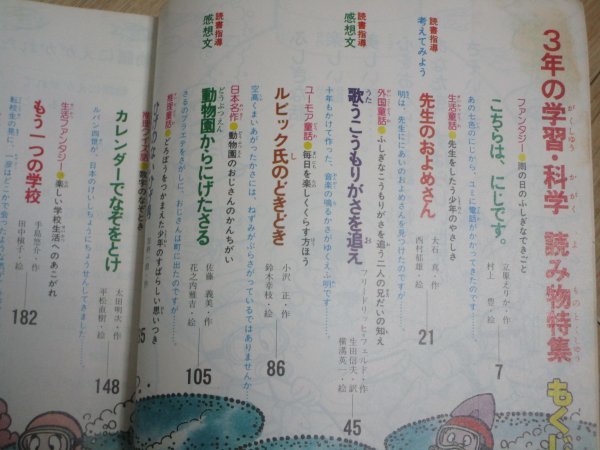 3年の学習・科学 読み物特集 もくじ
ファンタジー●雨の日のふしぎなできごと
こちらは、にじです。
あの七色のにじから、ユミに電話がかかってきたのです……
立原えりか・作
村上 豊・絵
7
読書指導
考えてみよう
生活童話●先生をしたう少年のやさしさ
先生のおよめさん
明は、先生ににあいのおよめさんを見つけたのですが……
大石 真・作
西村郁雄・絵
21
外国童話●ふしぎなこうもりがさを追う二人の兄だいの知え
歌うこうもりがさを追え
十年もかけて作った、音楽の鳴るかさがゆくえふ明です……
フリードリッヒ・フェルド・作
生田信夫・訳
横溝英一・絵
45
読書指導
感想文
ユーモア童話●毎日を楽しくくらす方ほう
ルビック氏のどきどき
空高くまいあがったかさには、ねずみがぶらさがっているではありませんか
小沢 正・作
鈴木幸枝・絵
86
日本名作●動物園のおじさんのかんちがい
動物園からにげたさる
さるのブラエテをさがしに、おじさんは町に出たのですが……
佐藤義美・作
花之内雅吉・絵
105
読書指導
感想文
推理童話●どろぼうをつかまえた少年のすばらしい思いつき
カレンダーでなぞをとけ
ルパン四世が、日本のけいしちょうにちょうせんしてきました
太田明次・作
平松直樹・絵
148
生活ファンタジー●楽しい学校生活へのあこがれ
もう一つの学校
手島悠介・作
田中槇子・絵
182